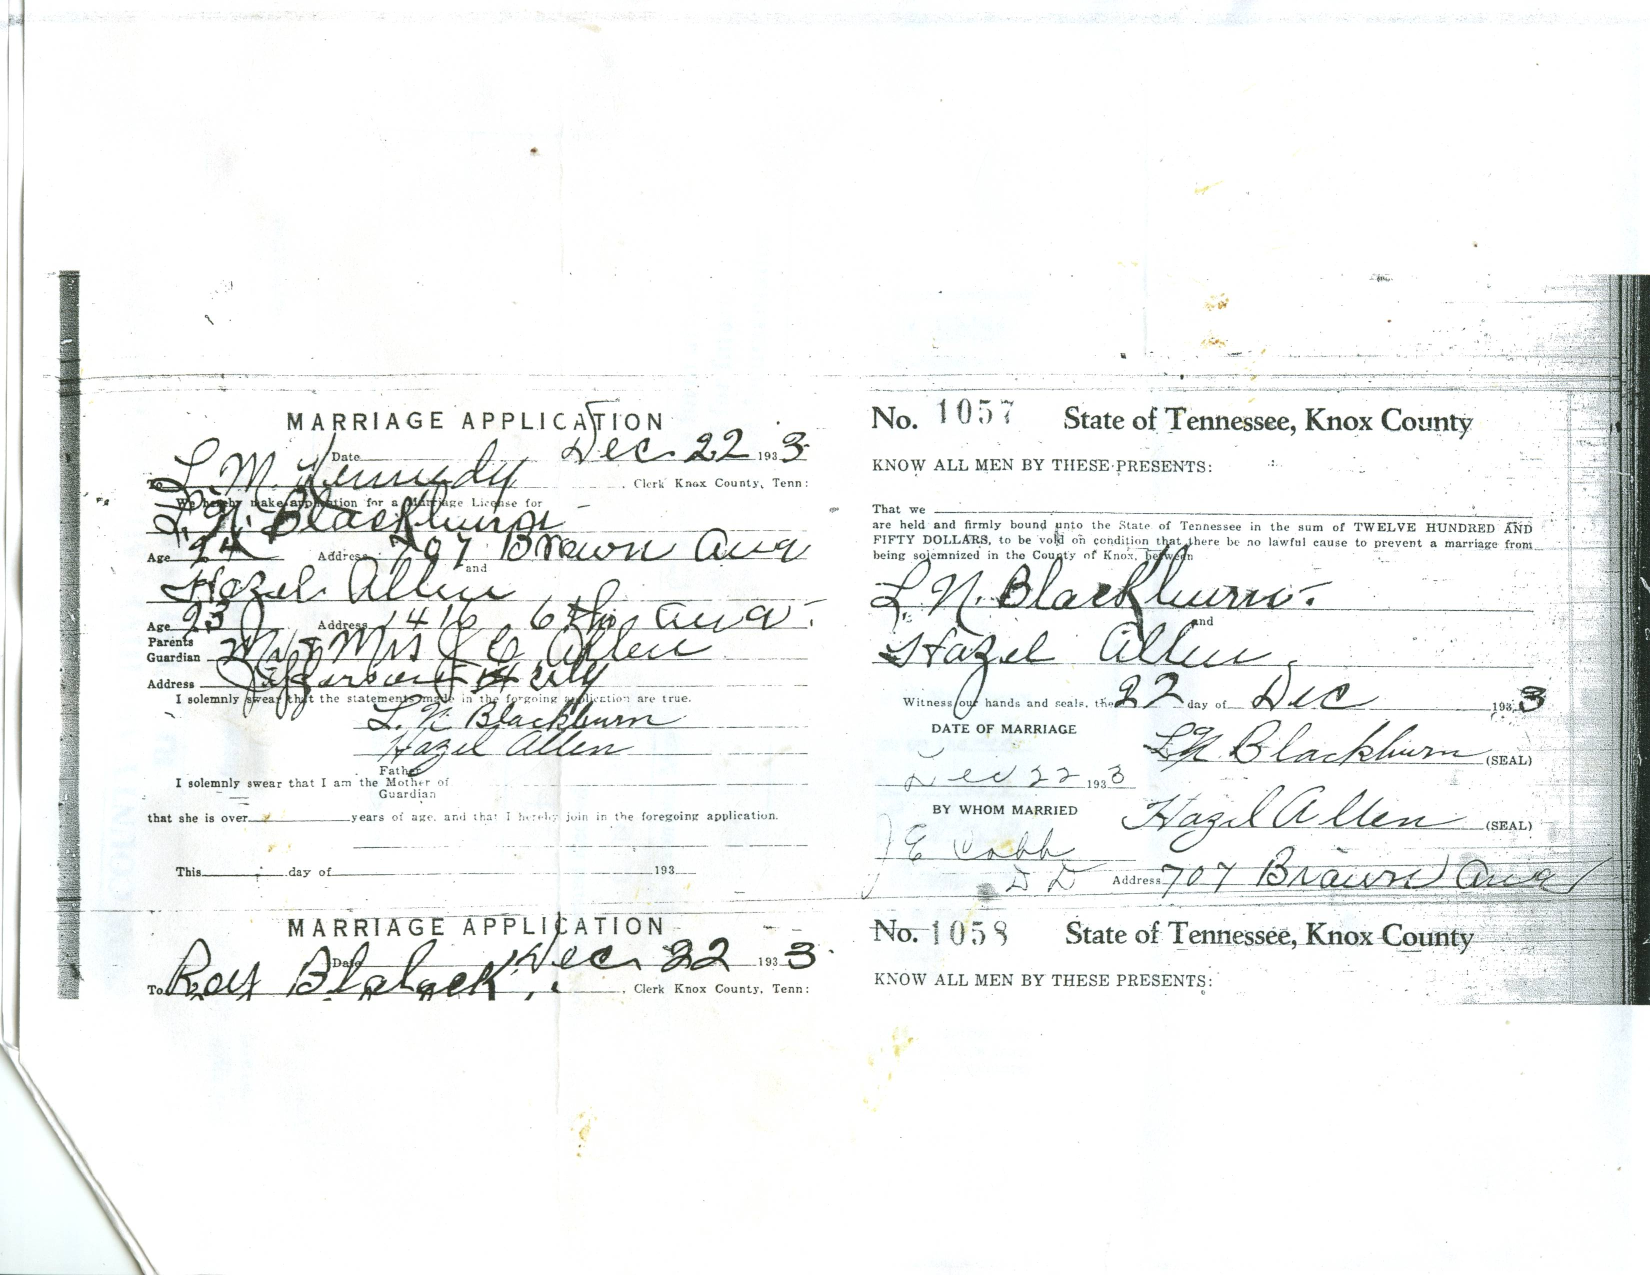 MARRIAGE APPLICATION
Date Dec 22 1933
To L. M. Kennedy, Clerk Knox County, Tenn:
We hereby make application for a Marriage License for
L. N. Blackburn
Age 24 Address 707 Brown Ave
and
Hazel Allen
Age 23 Address 1416 6th Ave.
Parents
Guardian Mr & Mrs J C Allen
Address Jefferson City
I solemnly swear that the statements made in the forgoing application are true.
L. N. Blackburn
Hazel Allen
Father
I solemnly swear that I am the Mother of
Guardian
that she is over years of age, and that I hereby join in the foregoing application.
This day of 193
MARRIAGE APPLICATION
Date Dec 22 1933.
To Roy Blalock, Clerk Knox County, Tenn:
No. 1057 State of Tennessee, Knox County
KNOW ALL MEN BY THESE PRESENTS:
That we
are held and firmly bound unto the State of Tennessee in the sum of TWELVE HUNDRED AND
FIFTY DOLLARS, to be void on condition that there be no lawful cause to prevent a marriage from
being solemnized in the County of Knox, between
L. N. Blackburn.
and
Hazel Allen.
Witness our hands and seals, the 22 day of Dec 1933
DATE OF MARRIAGE
L N Blackburn (SEAL)
Dec 22 1933
BY WHOM MARRIED
Hazel Allen (SEAL)
J E Cobb
D D
Address 707 Brown Ave
No. 1058 State of Tennessee, Knox County
KNOW ALL MEN BY THESE PRESENTS: